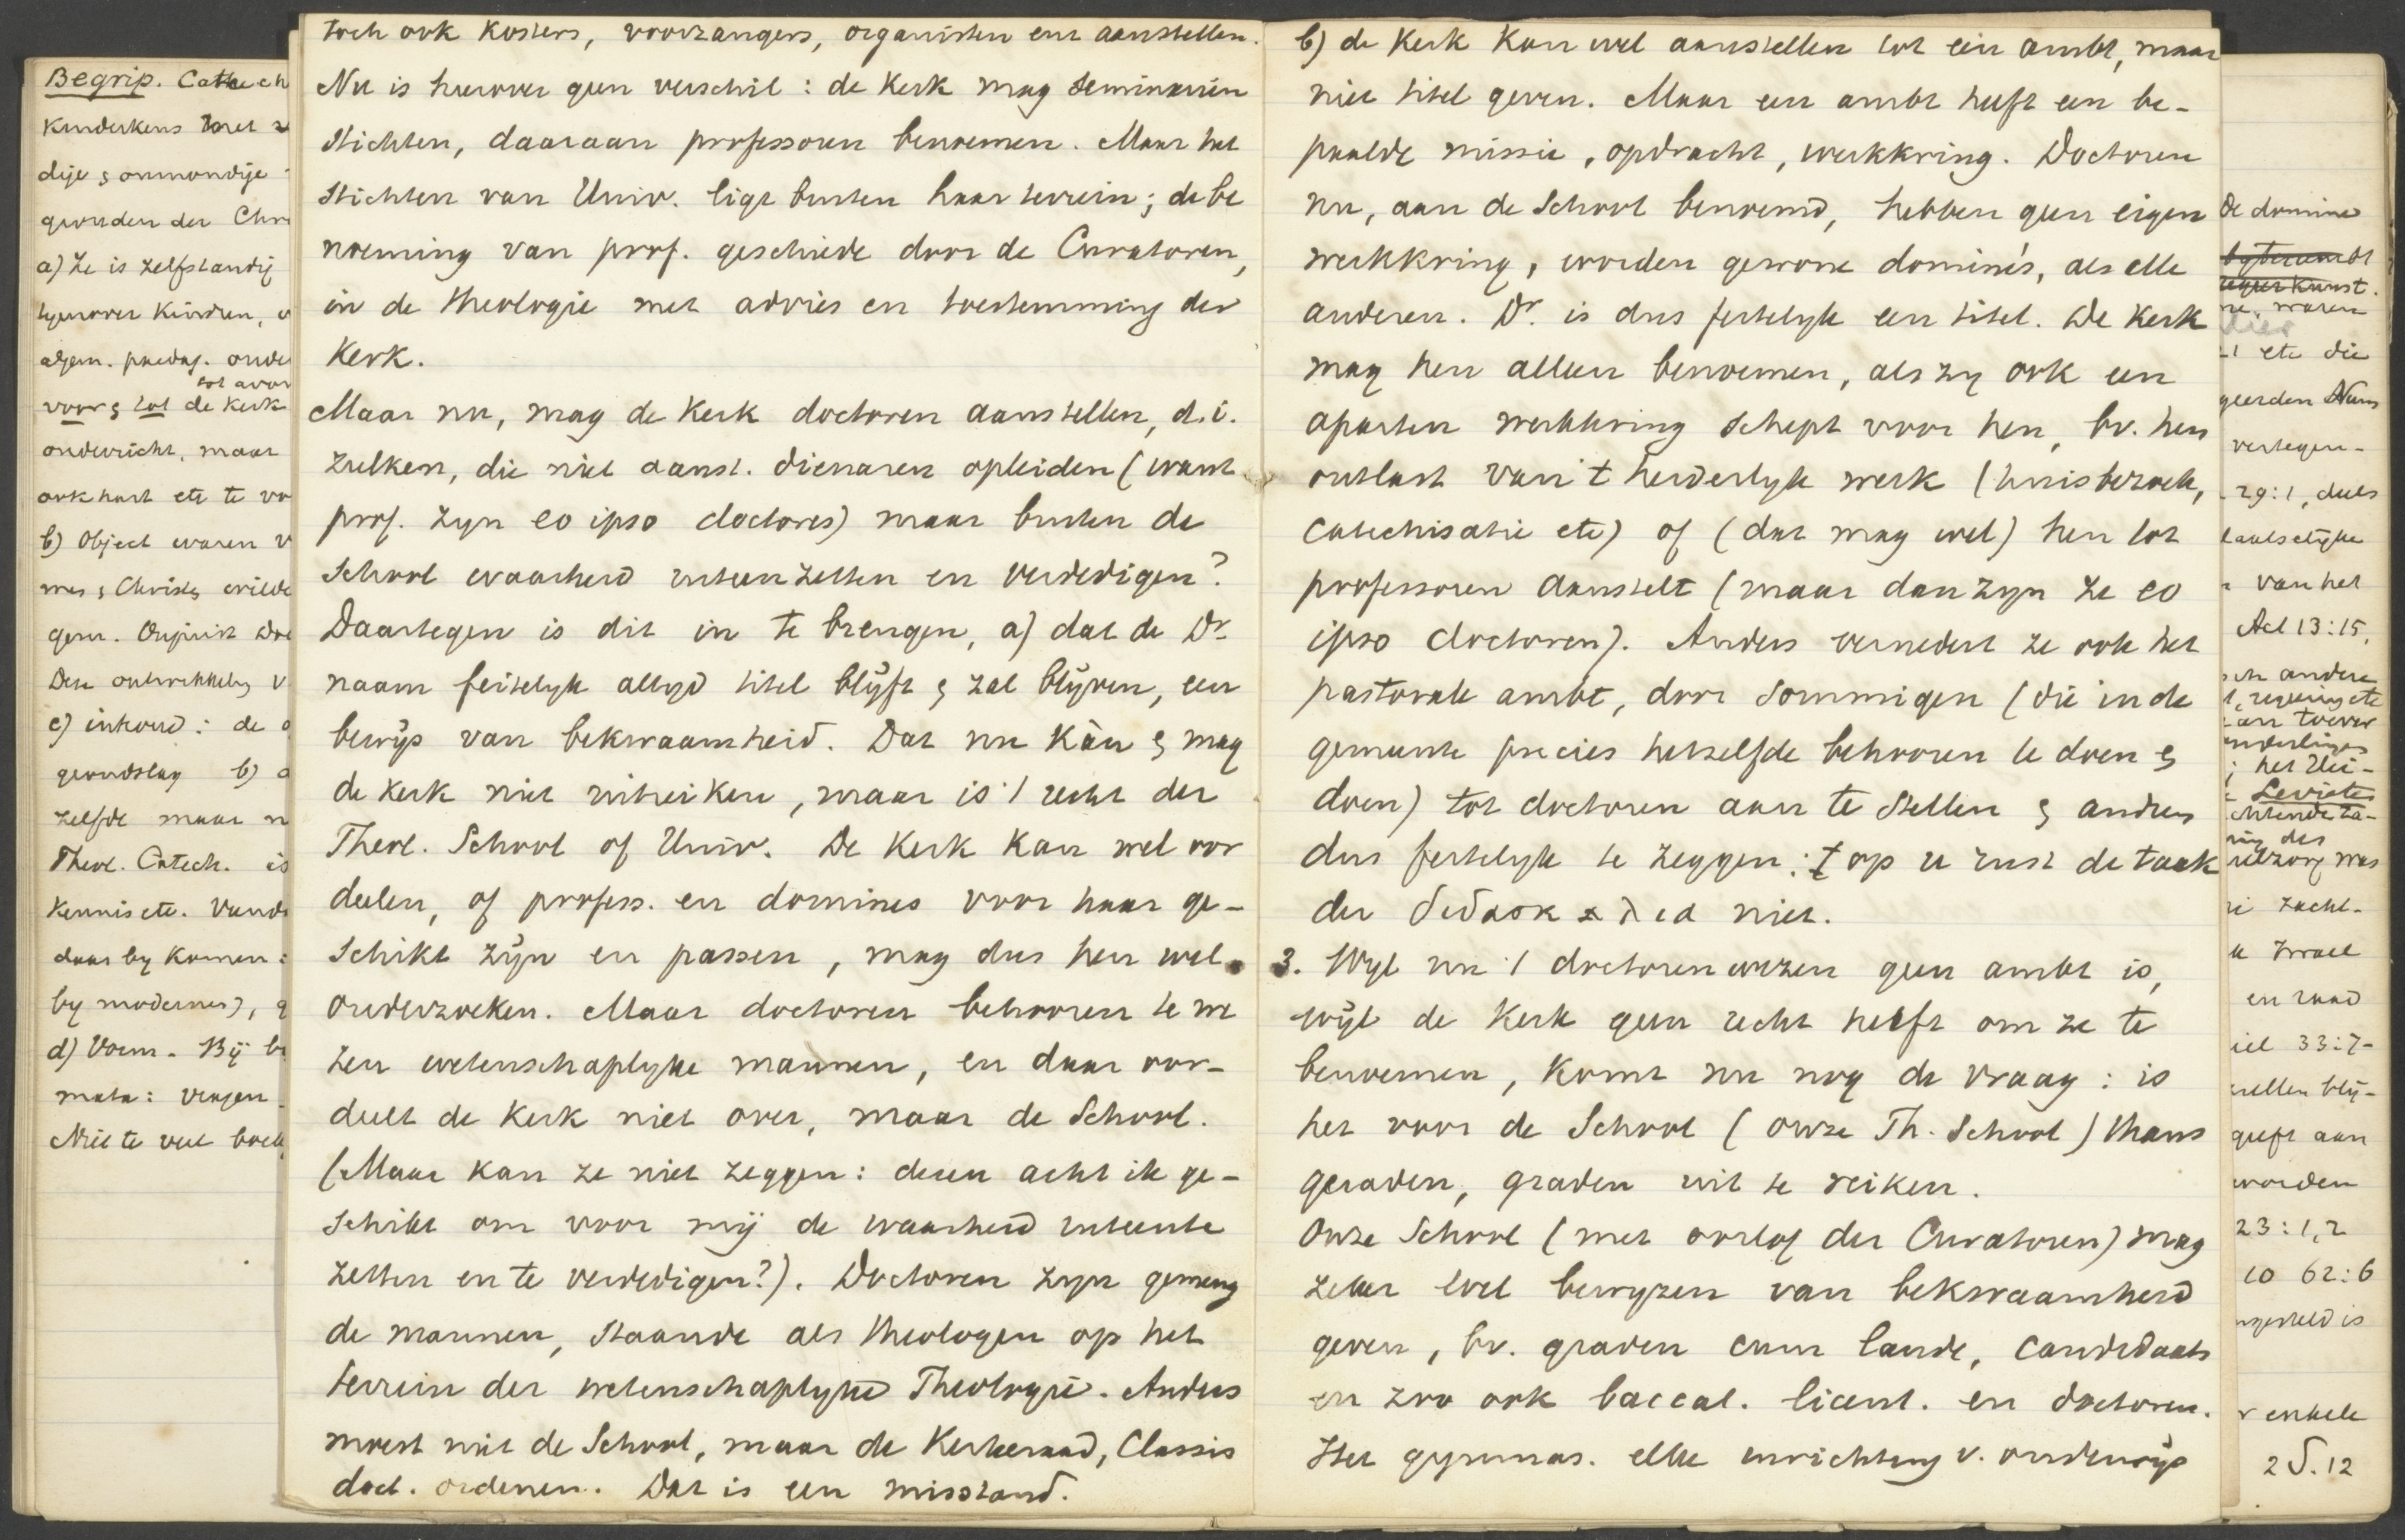 Begrip. Catech
Kinderkens met
dije & onmondije
gevonden der Chr
a) Ze is zelfstandig
tegenover Kindren,
algem. paedag. onde
tot avon
voor & tot de Kerk
onderricht, maar
ook hart etc te vo
b) Object waren
mes & Christ wilde
gem.
Deze ontwikkeling v
c) inhoud: de
grondslag b)
zelfde maar n
Theol. Catech. is
Kennis etc.
daar by Komen:
by modernen),
d) Vorm. By
mata: vragen
Niet te veel boek
toch ook Kosters, voorzangers, organisten enz aanstellen.
Nu is hierover geen verschil: de Kerk mag Seminariën
stichten, daaraan professoren benoemen. Maar het
stichten van Univ. ligt buiten haar terrein; de be
noeming van prof. geschiede door de Curatoren,
in de theologie met advies en toestemming der
Kerk.
Maar nu, mag de Kerk doctoren aanstellen, d.i.
zulken, die niet aanst. dienaren opleiden (want
prof. zyn eo ipso doctores) maar buiten de
School waarheid uiteenzetten en verdedigen?
Daartegen is dit in te brengen, a) dat de Dr.
naam feitelyk altyd titel blyft & zal blyven, een
bewys van bekwaamheid. Dat nu Kàn & mag
de Kerk niet uitreiken, maar is 't recht der
Theol. School of Univ. De Kerk Kan wel oor
deelen, of profess. en domines voor haar ge-
schikt zyn en passen, mag dus hen wel
onderzoeken. Maar doctoren behooren te we
zen wetenschaplyke mannen, en daar oor-
deelt de Kerk niet over, maar de School.
(Maar kan ze niet zeggen: dezen acht ik ge-
schikt om voor mij de waarheid uiteente
zetten en te verdedigen?). Doctoren zyn gemeng
de mannen, staande als theologen op het
terrein der wetenschaplyke Theologie. Anders
moest niet de School, maar de Kerkeraad, Classis
doct. ordenen. Dat is een misstand.
b) de Kerk Kan wel aanstellen tot een ambt, maar
niet titel geven. Maar een ambt heeft een be-
paalde missie, opdracht, werkkring. Doctoren
nu, aan de School benoemd, hebben geen eigen
werkkring, worden gewone dominé's, als elle
anderen. Dr. is dus feitelyk een titel. De Kerk
mag hen alleen benoemen, als zy ook een
aparten werkkring schept voor hen, bv. hen
ontlast van 't herderlyk werk (huisbezoek,
catechisatie etc) of (dat mag wel) hen tot
professoren aanstelt (maar dan zyn ze eo
ipso doctoren). Anders vernedert ze ook het
pastorale ambt, door sommigen (die in de
gemeente precies hetzelfde behooren te doen &
doen) tot doctoren aan te stellen & andren
dus feitelyk te zeggen: op u rust de taak
der διδασκαλια niet.
3. Wyl nu 't doctoren wezen geen ambt is,
wyl de Kerk geen recht heeft om ze te
benoemen, komt nu nog de vraag: is
het voor de School (onze Th. School) thans
geraden, graden uit te reiken.
Onze School (met oorlof der Curatoren) mag
zeker wel bewyzen van bekwaamheid
geven, bv. graden cum laude, candidaats
en zoo ook baccal. licent. en doctoren.
Het gymnas. elke inrichting v. onderwys
De domine
ne. waren
etc die
geerden Nam
vertegen-
29:1, deels
laatselyke
van het
Act 13:15,
andere
regeering etc
toever
het Vei-
Levieten
des
zielzorg was
zacht-
Israel
en raad
iel 33:7-
zullen bly-
geeft aan
worden
23:1,2
62:6
ngesteld is
enkele
2 S. 12